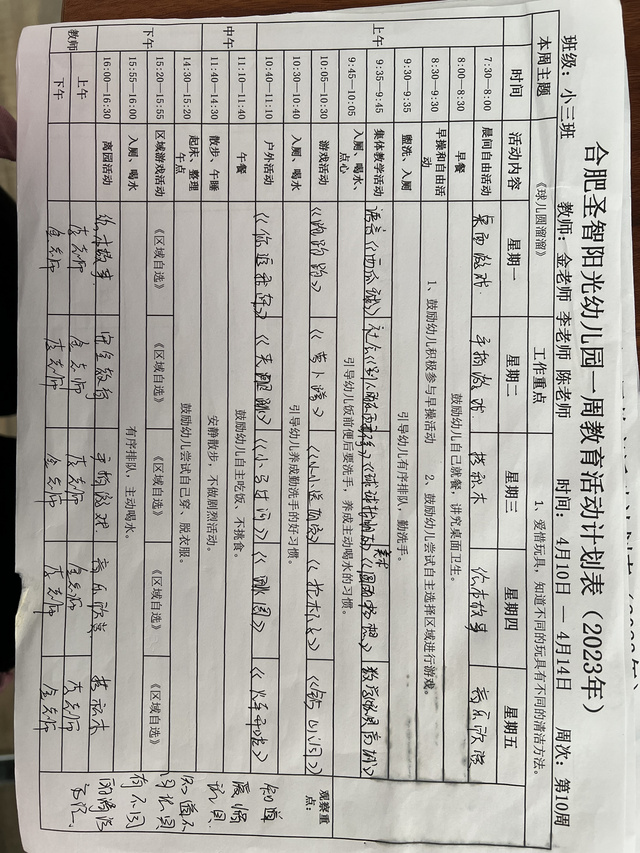 合肥圣智阳光幼儿园一周教育活动计划表（2023年）
班级：小三班 教师：金老师 李老师 陈老师 时间： 4月10日 — 4月14日 周次：第10周
本周主题 《球儿圆溜溜》 工作重点 1、爱惜玩具，知道不同的玩具有不同的清洁方法。
时间 活动内容 星期一 星期二 星期三 星期四 星期五
上午
7:30—8:00 晨间自由活动 桌面游戏 手指游戏 搭积木 绘本故事 音乐欣赏
8:00—8:30 早餐 鼓励幼儿自己就餐，讲究桌面卫生。
8:30—9:30 早操和自由活动 1、鼓励幼儿积极参与早操活动 2、鼓励幼儿尝试自主选择区域进行游戏。
9:30—9:35 盥洗、入厕 引导幼儿有序排队，勤洗手。
9:35—9:45 集体教学活动 语言《西瓜球》 社会 美术《圆圆的梦想》 数学
9:45—10:05 入厕、喝水、点心 引导幼儿饭前便后要洗手，养成主动喝水的习惯。
10:05—10:30 游戏活动 《跑跑跑》 《萝卜蹲》 《小小送 》 《抢木头》 《 山洞》
10:30—10:40 入厕、喝水 引导幼儿养成勤洗手的好习惯。
10:40—11:10 户外活动 《你追我奔》 《天 跳》 《小马过河》 《跳圈》 《火车开啦》
观察重点：
知道爱惜玩具，知道不同玩具有不同的清洁方法。
中午
11:10—11:40 午餐 鼓励幼儿自主吃饭、不挑食。
11:40—14:30 散步、午睡 安静散步，不做剧烈活动。
下午
14:30—15:20 起床、整理午点 鼓励幼儿尝试自己穿、脱衣服。
15:20—15:55 区域游戏活动 《区域自选》 《区域自选》 《区域自选》 《区域自选》 《区域自选》
15:55—16:00 入厕、喝水 有序排队，主动喝水。
16:00—16:30 离园活动 绘本故事 安全教育 手指游戏 音乐欣赏 搭积木
教师
上午 李老师 金老师 李老师 金老师 李老师
下午 金老师 李老师 金老师 李老师 金老师